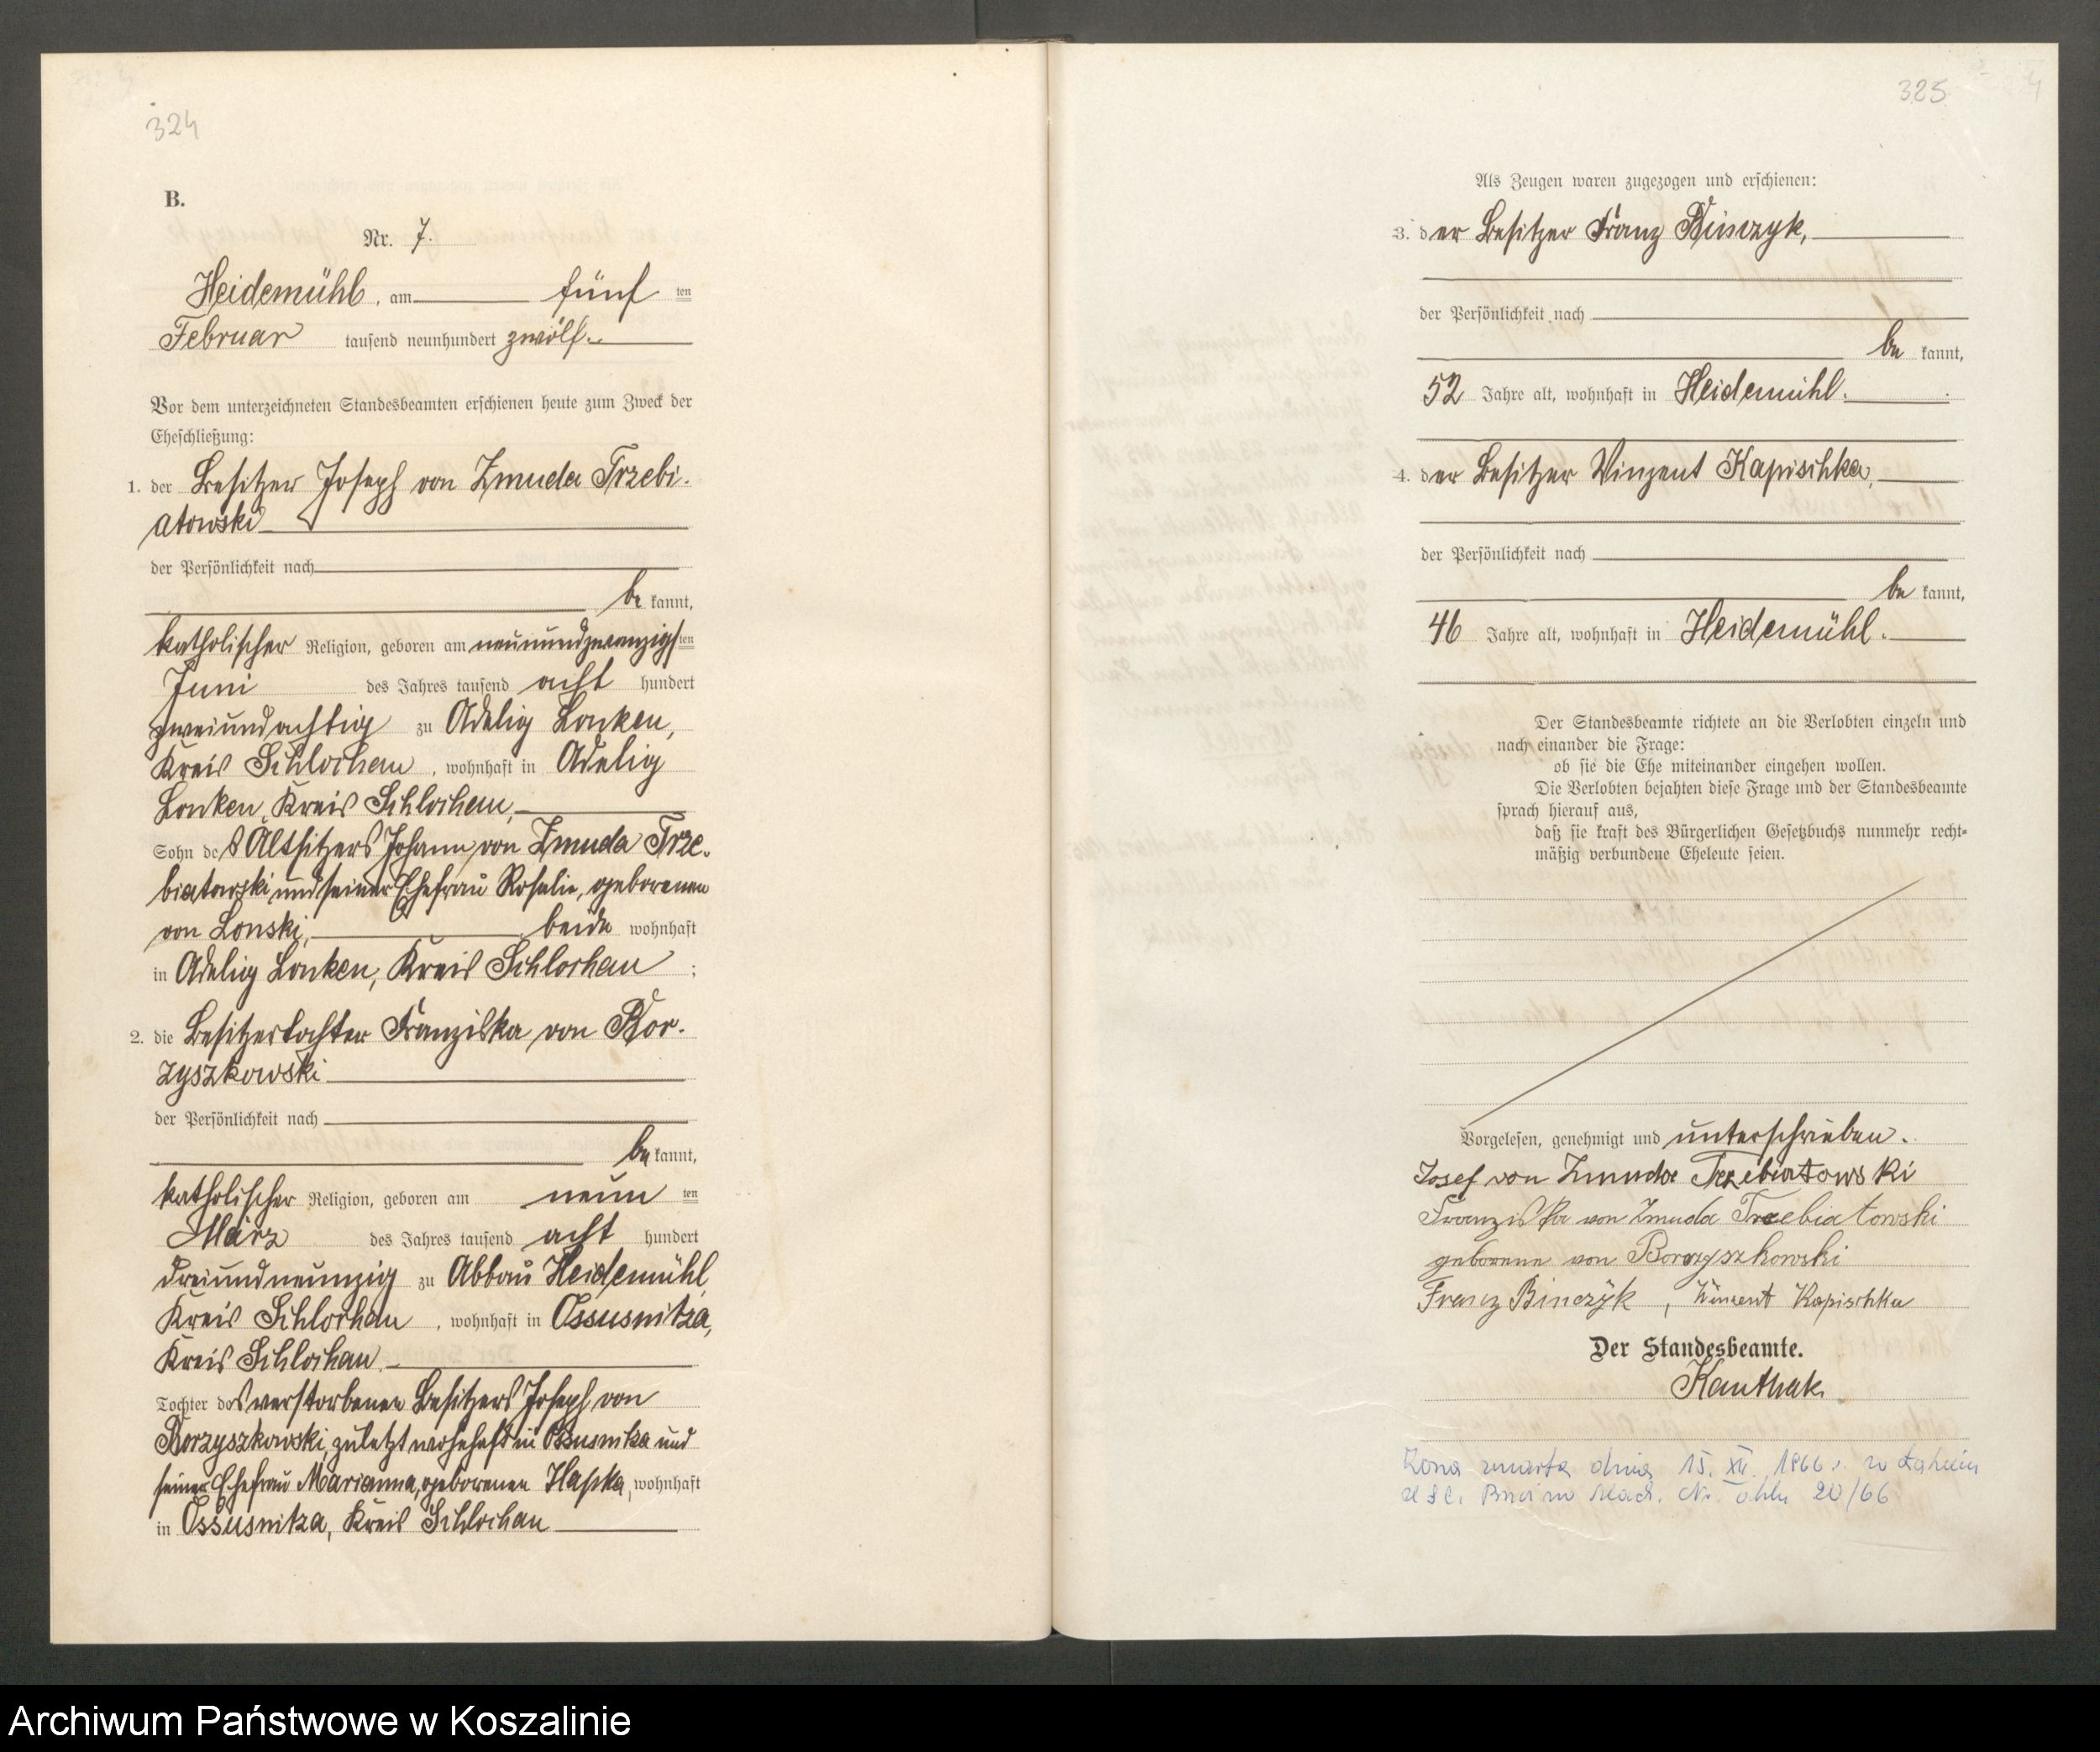 324
B.
Nr. 7.
Heidemühl, am fünf ten
Februar tausend neunhundert zwölf.
Vor dem unterzeichneten Standesbeamten erschienen heute zum Zweck der
Eheschließung:
1. der Besitzer Joseph von Zmuda Trzebi-
atowski
der Persönlichkeit nach
be kannt,
katholischer Religion, geboren am neunundzwanzigsten
Juni des Jahres tausend acht hundert
zweiundachtzig zu Adelig Lonken,
Kreis Schlochau, wohnhaft in Adelig
Lonken, Kreis Schlochau,
Sohn des Altsitzers Johann von Zmuda Trze-
biatowski und seiner Ehefrau Rosalie, geborenen
von Lonski, beide wohnhaft
in Adelig Lonken, Kreis Schlochau ;
2. die Besitzertochter Franziska von Bor-
zyszkowski
der Persönlichkeit nach
be kannt,
katholischer Religion, geboren am neun ten
März des Jahres tausend acht hundert
dreiundneunzig zu Abbau Heidemühl,
Kreis Schlochau, wohnhaft in Ossusnitza,
Kreis Schlochau.
Tochter des verstorbenen Besitzers Joseph von
Borzyszkowski, zuletzt wohnhaft in Ossusnitza und
seiner Ehefrau Marianna, geborenen Hapka, wohnhaft
in Ossusnitza, Kreis Schlochau
325
Als Zeugen waren zugezogen und erschienen:
3. der Besitzer Franz Binczyk,
der Persönlichkeit nach
be kannt,
52 Jahre alt, wohnhaft in Heidemühl.
4. der Besitzer Vinzent Kapischka,
der Persönlichkeit nach
be kannt,
46 Jahre alt, wohnhaft in Heidemühl.
Der Standesbeamte richtete an die Verlobten einzeln und
nach einander die Frage:
ob sie die Ehe miteinander eingehen wollen.
Die Verlobten bejahten diese Frage und der Standesbeamte
sprach hierauf aus,
daß sie kraft des Bürgerlichen Gesetzbuchs nunmehr recht-
mäßig verbundene Eheleute seien.
Vorgelesen, genehmigt und unterschrieben.
Josef von Zmuda Trzebiatowski
Franziska von Zmuda Trzebiatowski
geborene von Borzyszkowski
Franz Binczyk, Vincent Kapischka
Der Standesbeamte.
Kanthak.
Żona zmarła dnia 15. XII. 1966 r. w
USC. Nr. 20/66
Archiwum Państwowe w Koszalinie